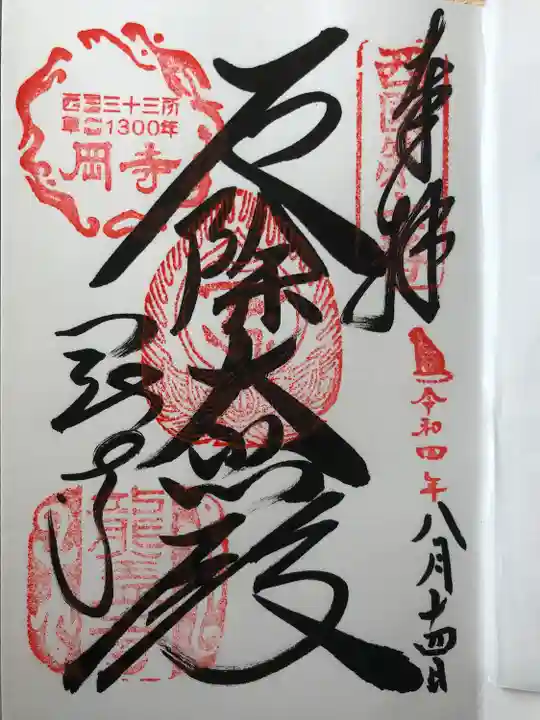 奉拝
西国第七番
令和四年
八月十四日
厄除大悲殿
龍蓋寺
西国三十三所
草創1300年
岡寺